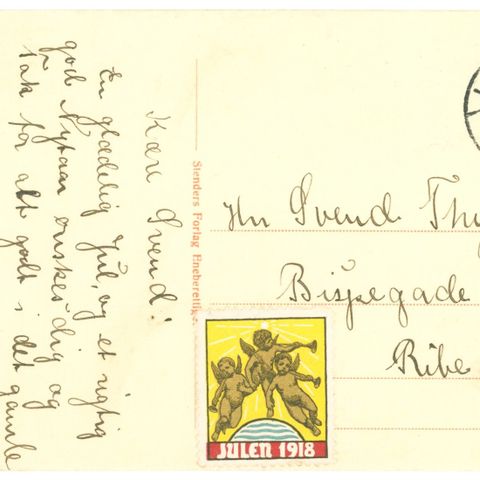 Kære Svend!
En glædelig Jul, og et rigtig
god Nytaar ønskes dig og
Tak for alt godt i det gamle
Stenders Forlag Eneberettige
Hr Svend Thy
Bispegade
Ribe
JULEN 1918